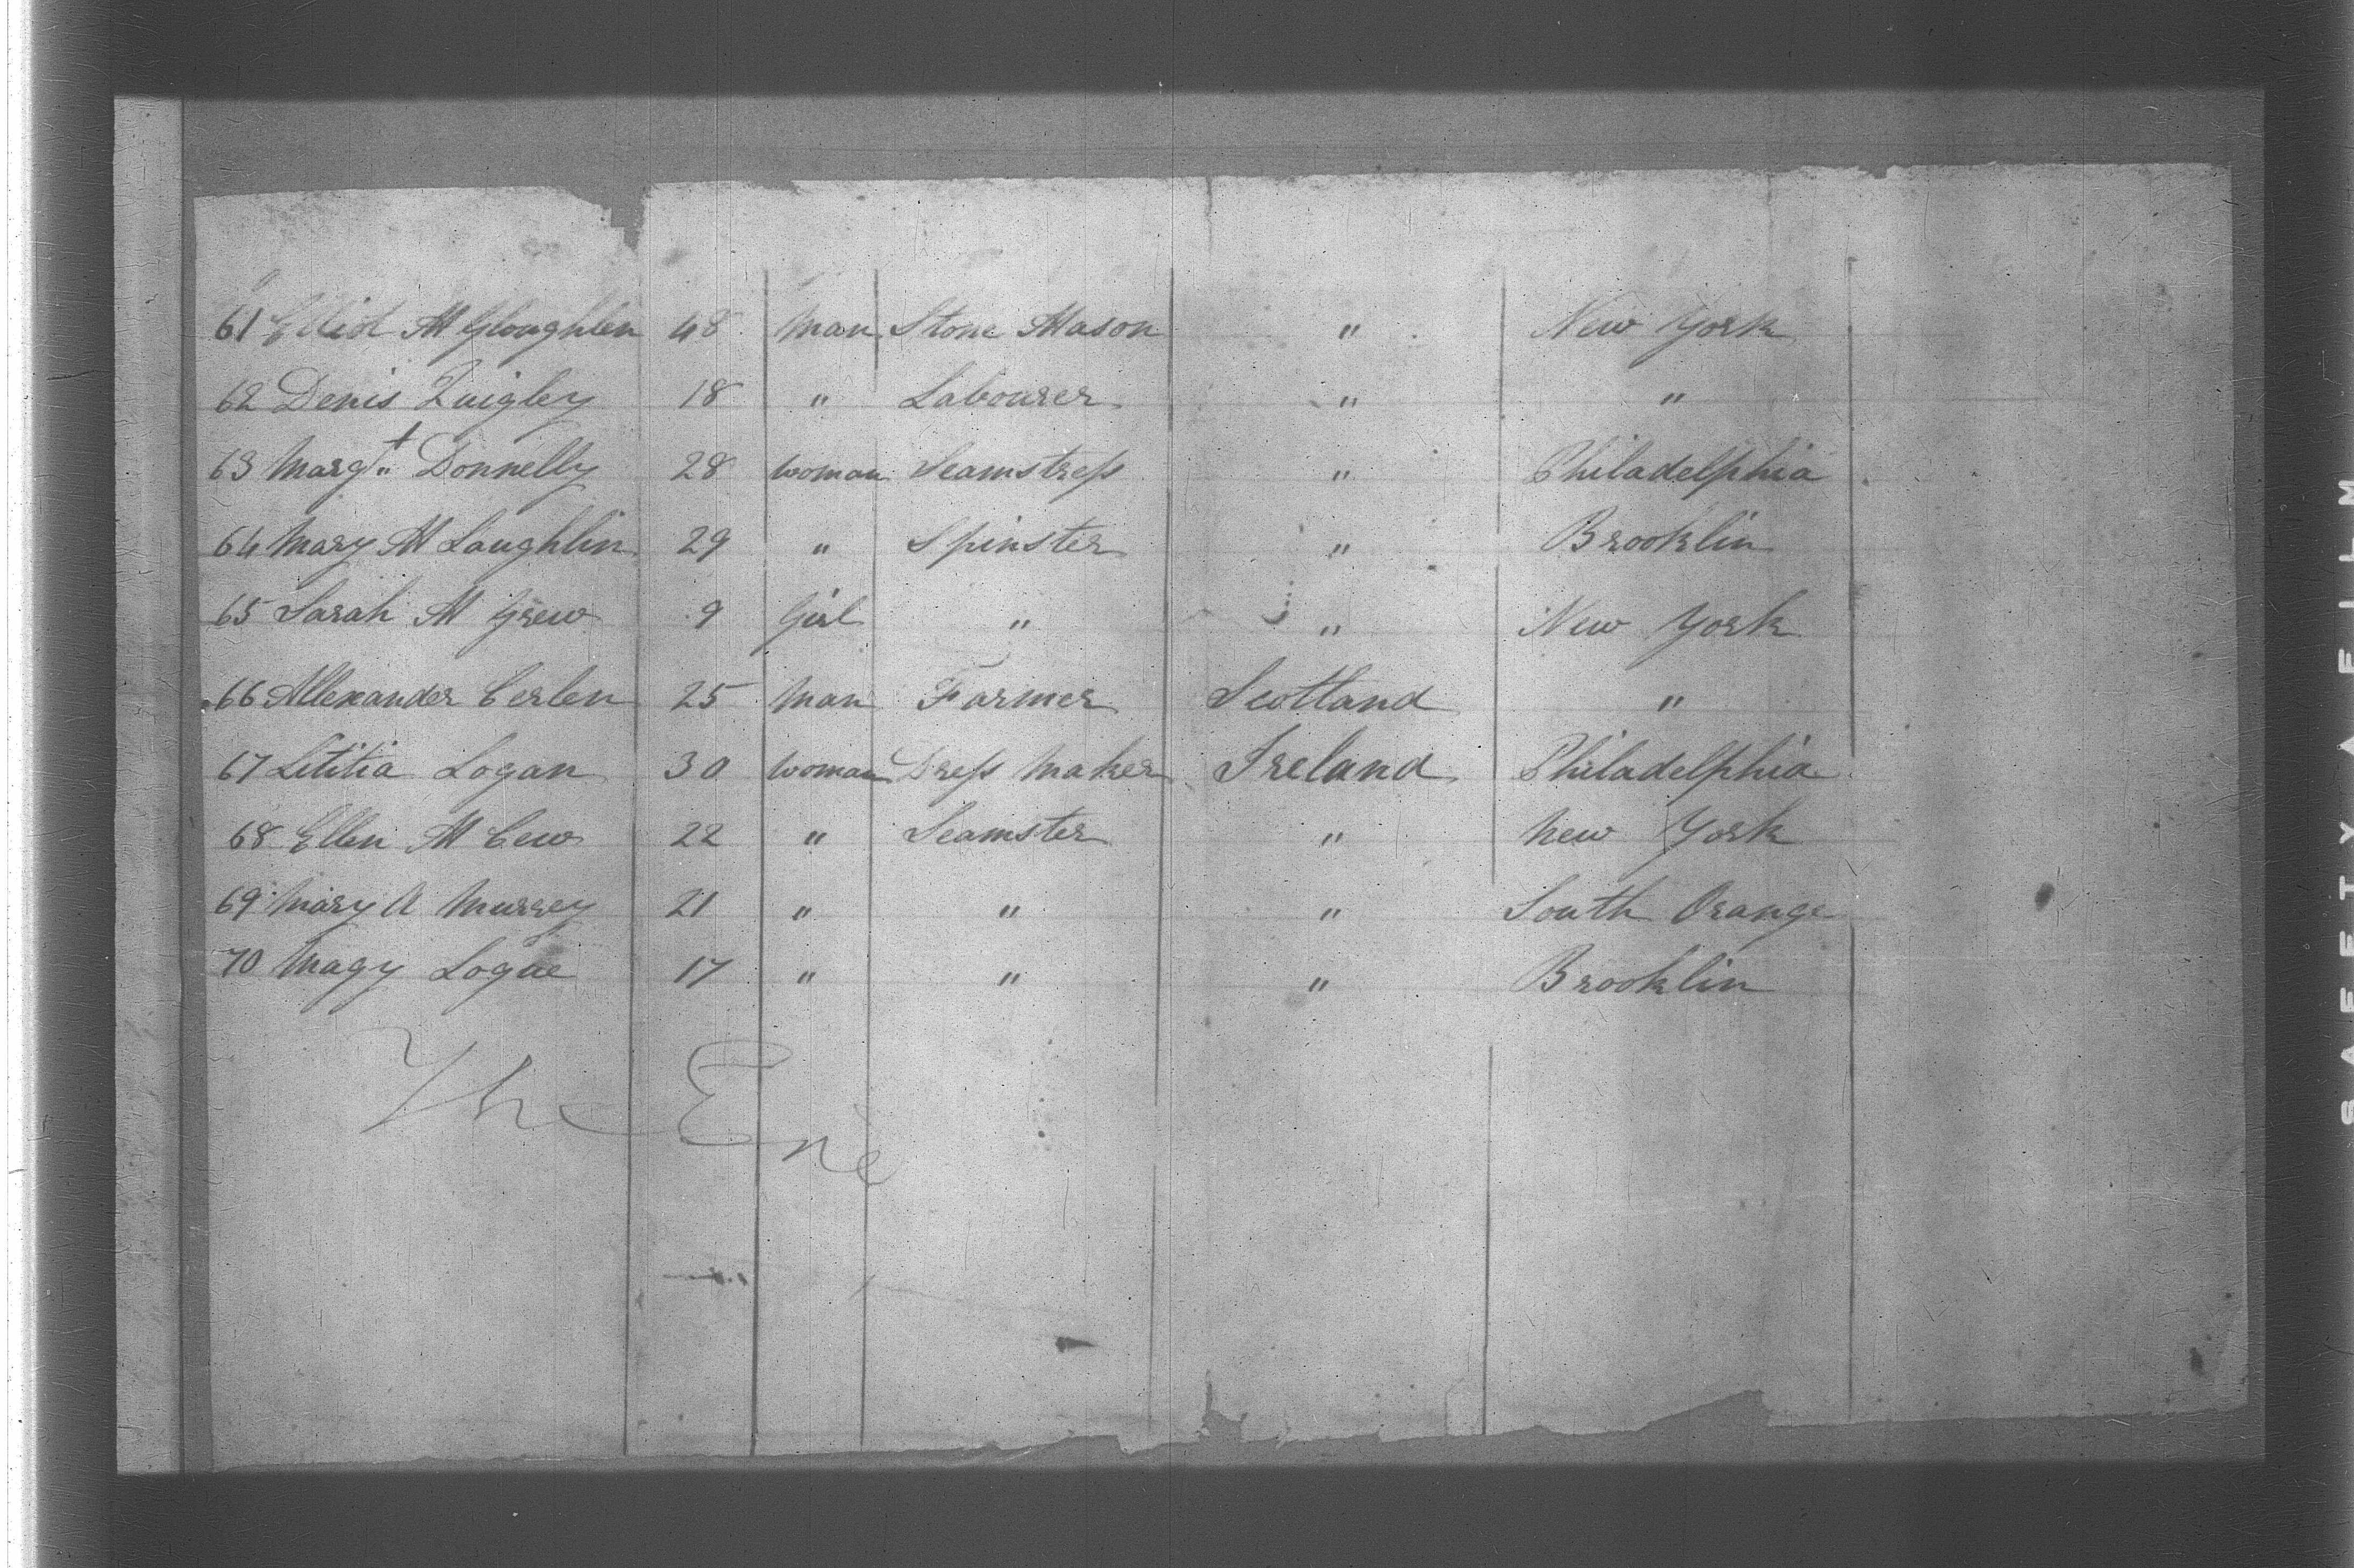 61 Elliot M Gloughlen 48 Man Stone Mason " New York
62 Denis Quigley 18 " Labourer " "
63 Margt Donnelly 28 Woman Seamstress " Philadelphia
64 Mary M Laughlin 29 " Spinster " Brooklin
65 Sarah M Grew 9 Girl " " New York
66 Allexander Cerlen 25 Man Farmer Scotland "
67 Letitia Logan 30 Woman Dress Maker Ireland Philadelphia
68 Ellen M Cew 22 " Seamster " New York
69 Mary A Murrey 21 " " " South Orange
70 Magy Logue 17 " " " Brooklin
The End
SAFETY A FILM